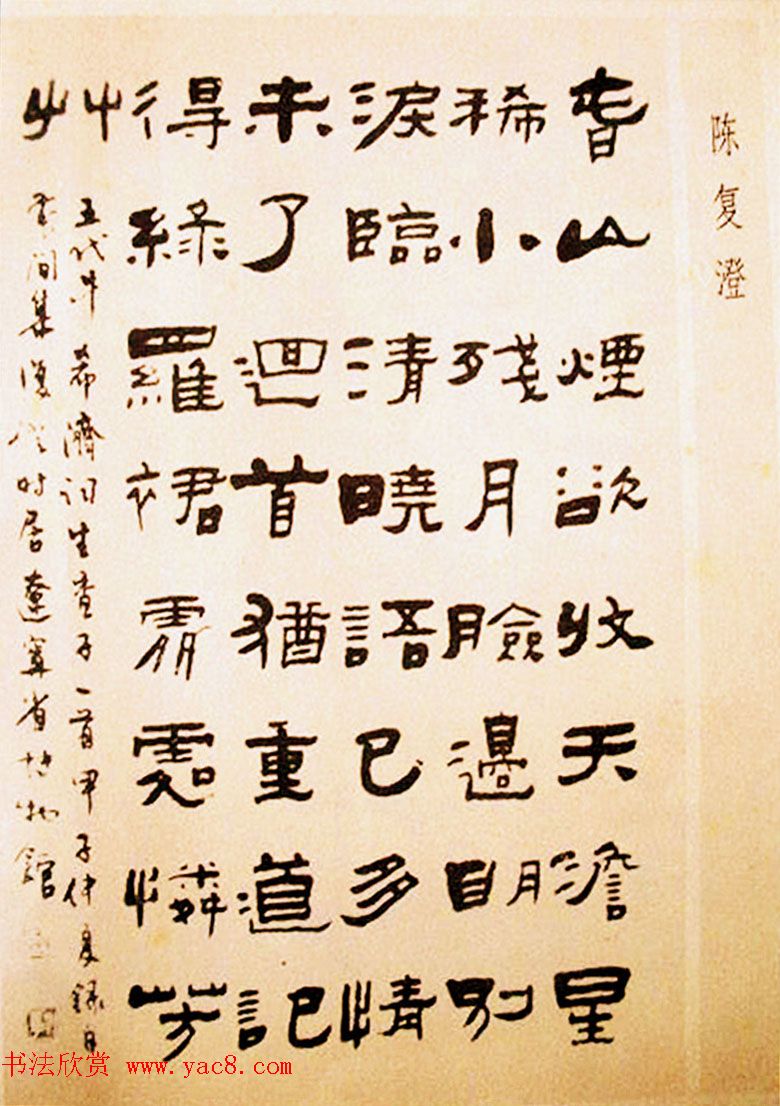 陈复澄
春山煙欲收天澹星
稀小殘月臉邊明別
淚臨清曉語已多情
未了迴首猶重道記
得綠羅裙處處憐芳
艸
五代牛希濟詞生查子一首甲子仲夏錄自
間集復澄時居遼寧省博物館
书法欣赏 www.yac8.com